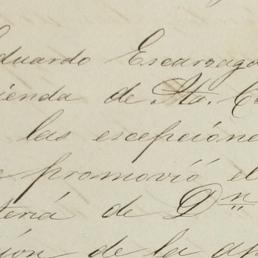 duardo Escarzag
ienda de Sta. C
las escepcione
e promovió el
teria de Dn
ción de la ap